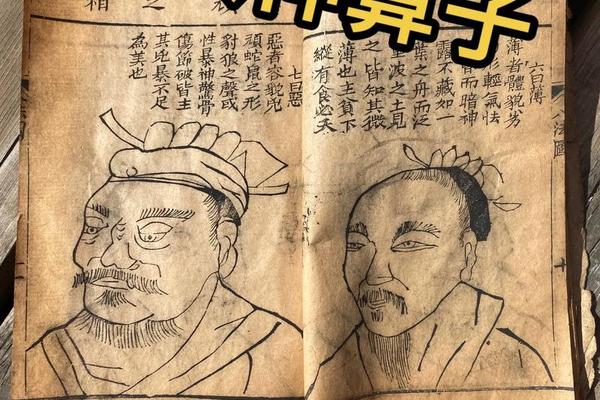 神算子
六曰薄
薄者體貌劣
形輕氣怯
而暗神
露不藏如一
葉之舟而泛
波之上見
之皆知其微
薄也主貧下
縱有食必夭
七曰惡
惡者容貌兇
頑蛇鼠之形
豺狼之聲或
性暴神驚骨
傷節破皆主
其兇暴不足
為美也
之
相
八法圖